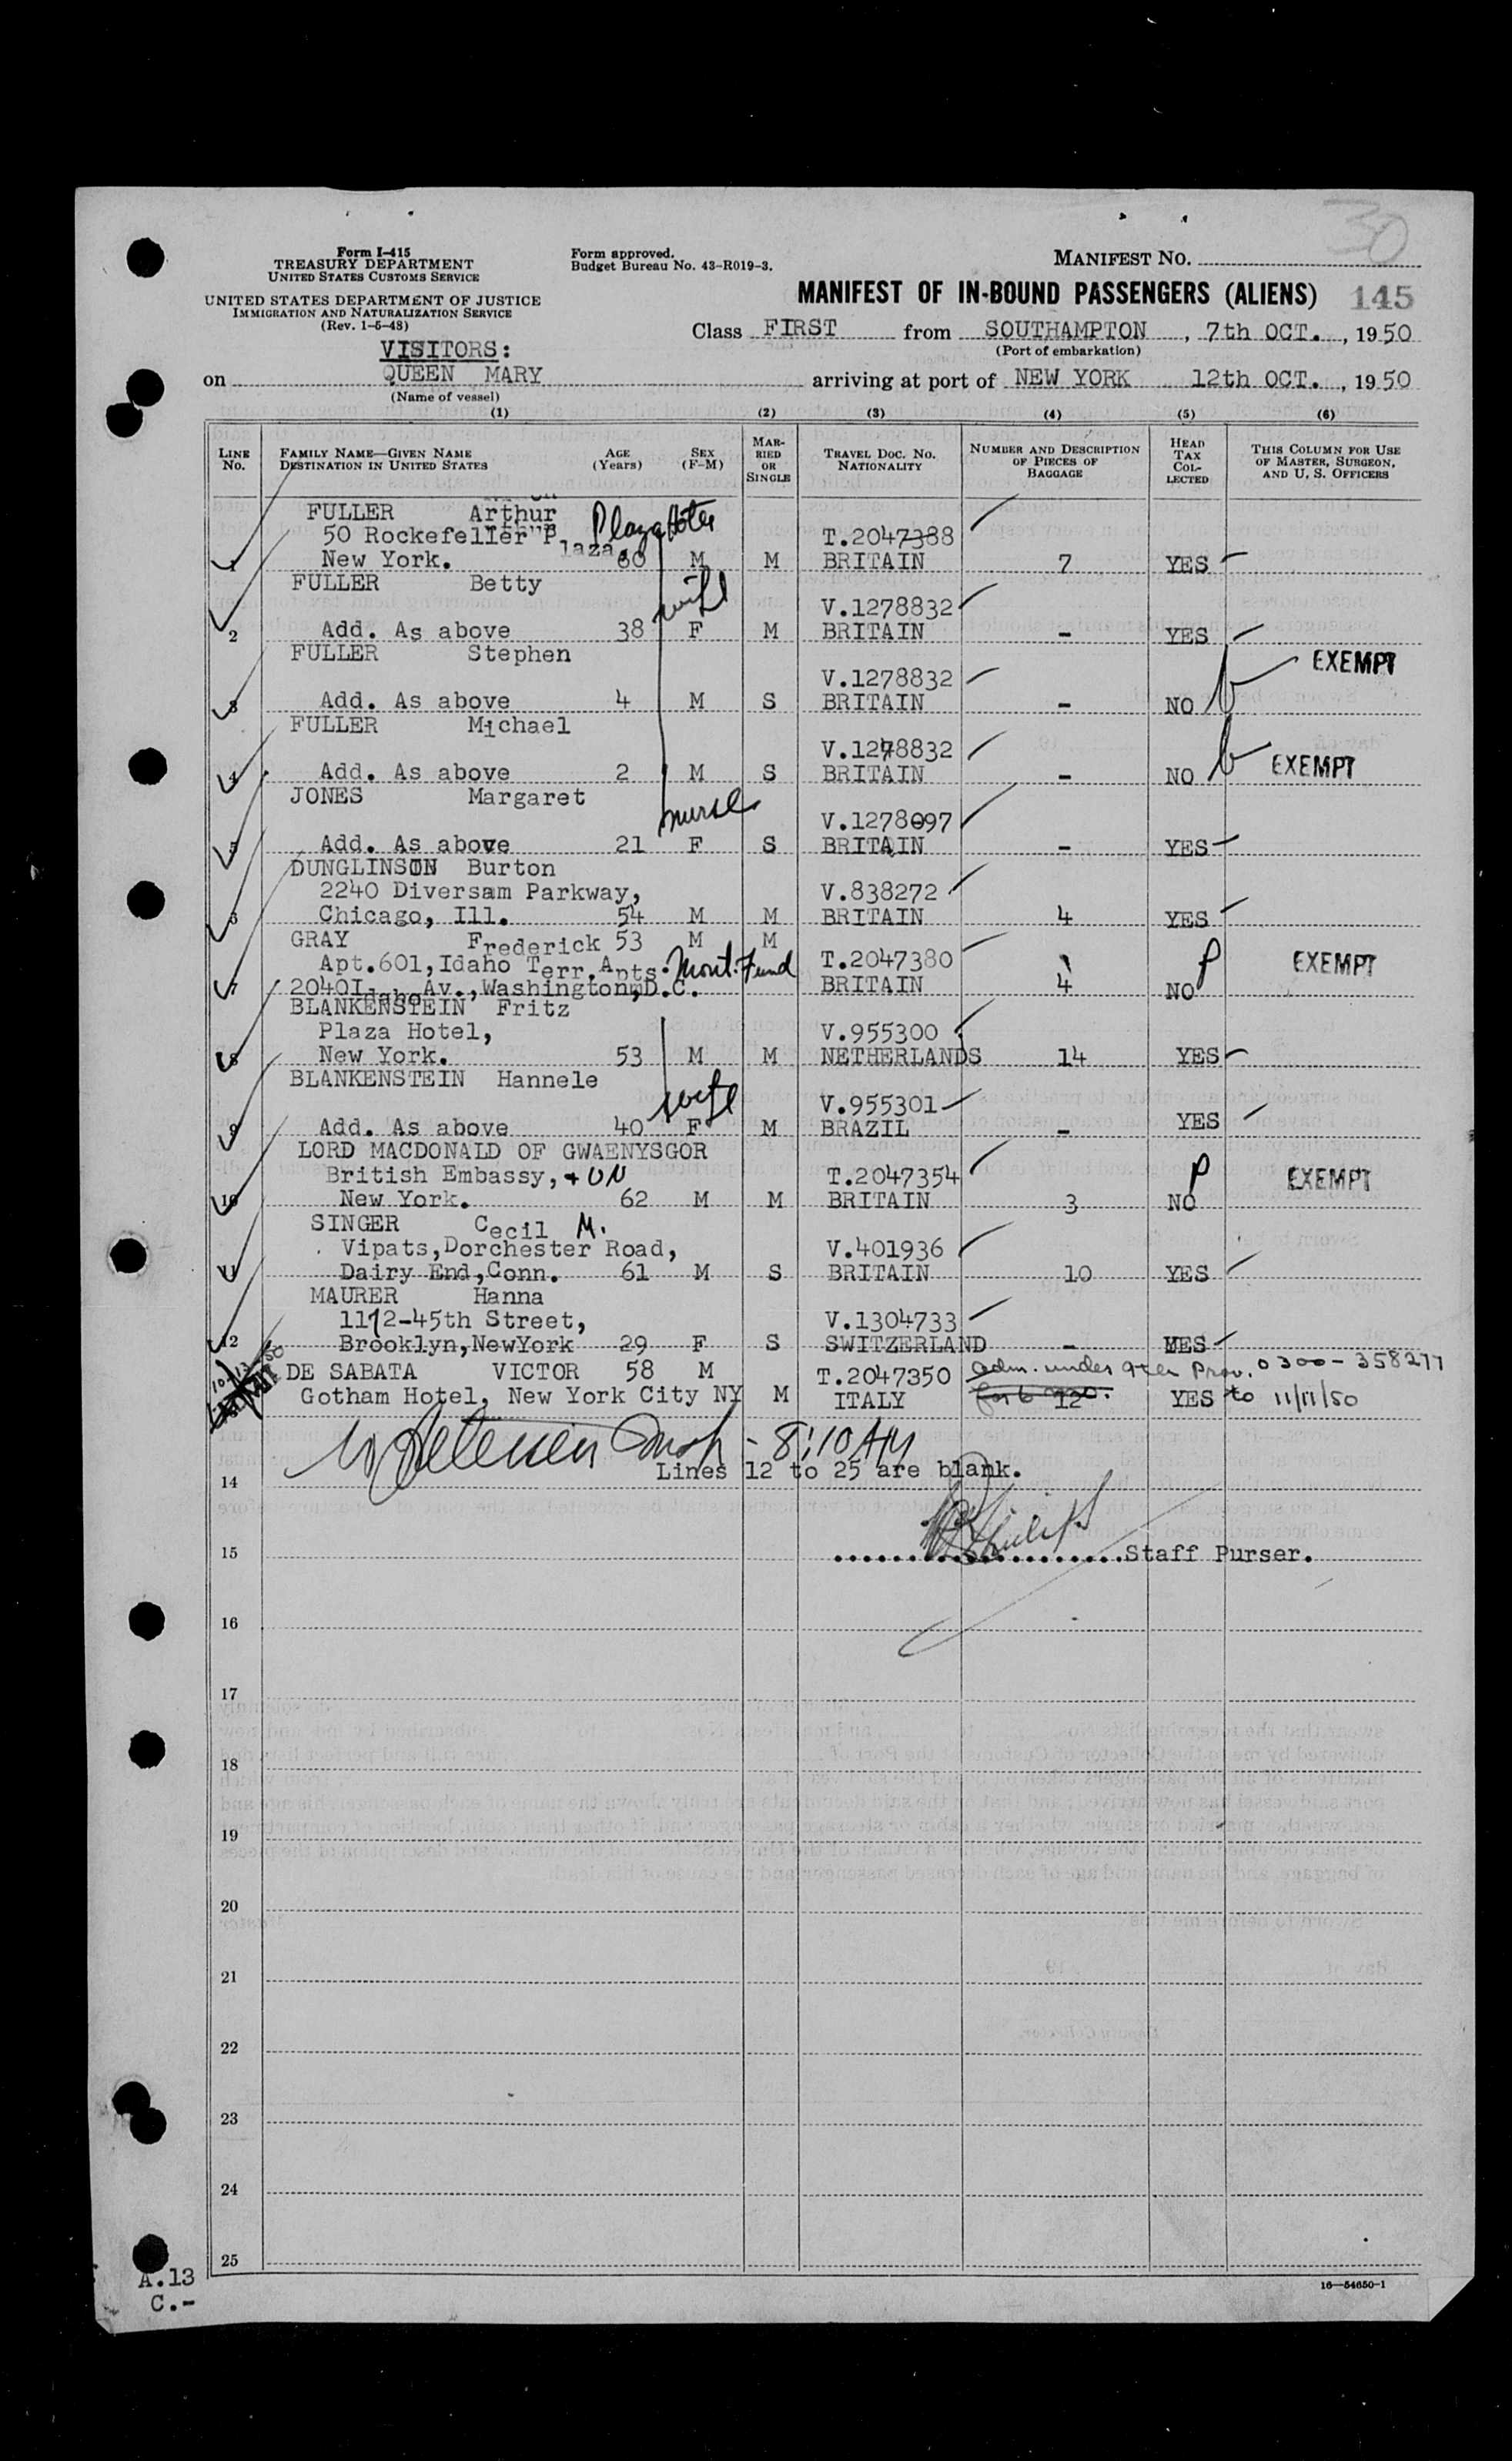 30
Form I-415
TREASURY DEPARTMENT
UNITED STATES CUSTOMS SERVICE
UNITED STATES DEPARTMENT OF JUSTICE
IMMIGRATION AND NATURALIZATION SERVICE
(Rev. 1-5-48)
Form approved.
Budget Bureau No. 43-R019-3.
MANIFEST NO.
MANIFEST OF IN-BOUND PASSENGERS (ALIENS) 145
Class FIRST from SOUTHAMPTON, 7th OCT., 1950
(Port of embarkation)
VISITORS:
on QUEEN MARY arriving at port of NEW YORK 12th OCT., 1950
(Name of vessel)
(1) (2) (3) (4) (5) (6)
LINE NO. FAMILY NAME—GIVEN NAME DESTINATION IN UNITED STATES AGE (Years) SEX (F-M) MARRIED OR SINGLE TRAVEL DOC. NO. NATIONALITY NUMBER AND DESCRIPTION OF PIECES OF BAGGAGE HEAD TAX COLLECTED THIS COLUMN FOR USE OF MASTER, SURGEON, AND U. S. OFFICERS
FULLER Arthur Plaza Hotel
50 Rockefeller Plaza, T.2047388
1 New York. 60 M M BRITAIN 7 YES
FULLER Betty wife
V.1278832
2 Add. As above 38 F M BRITAIN - YES
FULLER Stephen EXEMPT
V.1278832
3 Add. As above 4 M S BRITAIN - NO
FULLER Michael
V.1278832
4 Add. As above 2 M S BRITAIN - NO EXEMPT
JONES Margaret nurse
V.1278097
5 Add. As above 21 F S BRITAIN - YES
DUNGLINSON Burton
2240 Diversam Parkway, V.838272
6 Chicago, Ill. 54 M M BRITAIN 4 YES
GRAY Frederick 53 M M
Apt.601,Idaho Terr.Apts. Mont. Fund T.2047380 EXEMPT
7 2040Idaho Av.,Washington,D.C. BRITAIN 4 NO
BLANKENSTEIN Fritz
Plaza Hotel, V.955300
8 New York. 53 M M NETHERLANDS 14 YES
BLANKENSTEIN Hannele wife
V.955301
9 Add. As above 40 F M BRAZIL - YES
LORD MACDONALD OF GWAENYSGOR
British Embassy, + UN T.2047354 P EXEMPT
10 New York. 62 M M BRITAIN 3 NO
SINGER Cecil M.
Vipats,Dorchester Road, V.401936
11 Dairy End,Conn. 61 M S BRITAIN 10 YES
MAURER Hanna
1112-45th Street, V.1304733
12 Brooklyn,NewYork 29 F S SWITZERLAND - YES
10/13/50
DE SABATA VICTOR 58 M T.2047350 adm. under 9th Prov. 0300-358277
Gotham Hotel, New York City NY M ITALY 12 YES to 11/11/50
8:10 AM
14 Lines 12 to 25 are blank.
15 Staff Purser.
16
17
18
19
20
21
22
23
24
25
A.13
C.-
16—54650-1